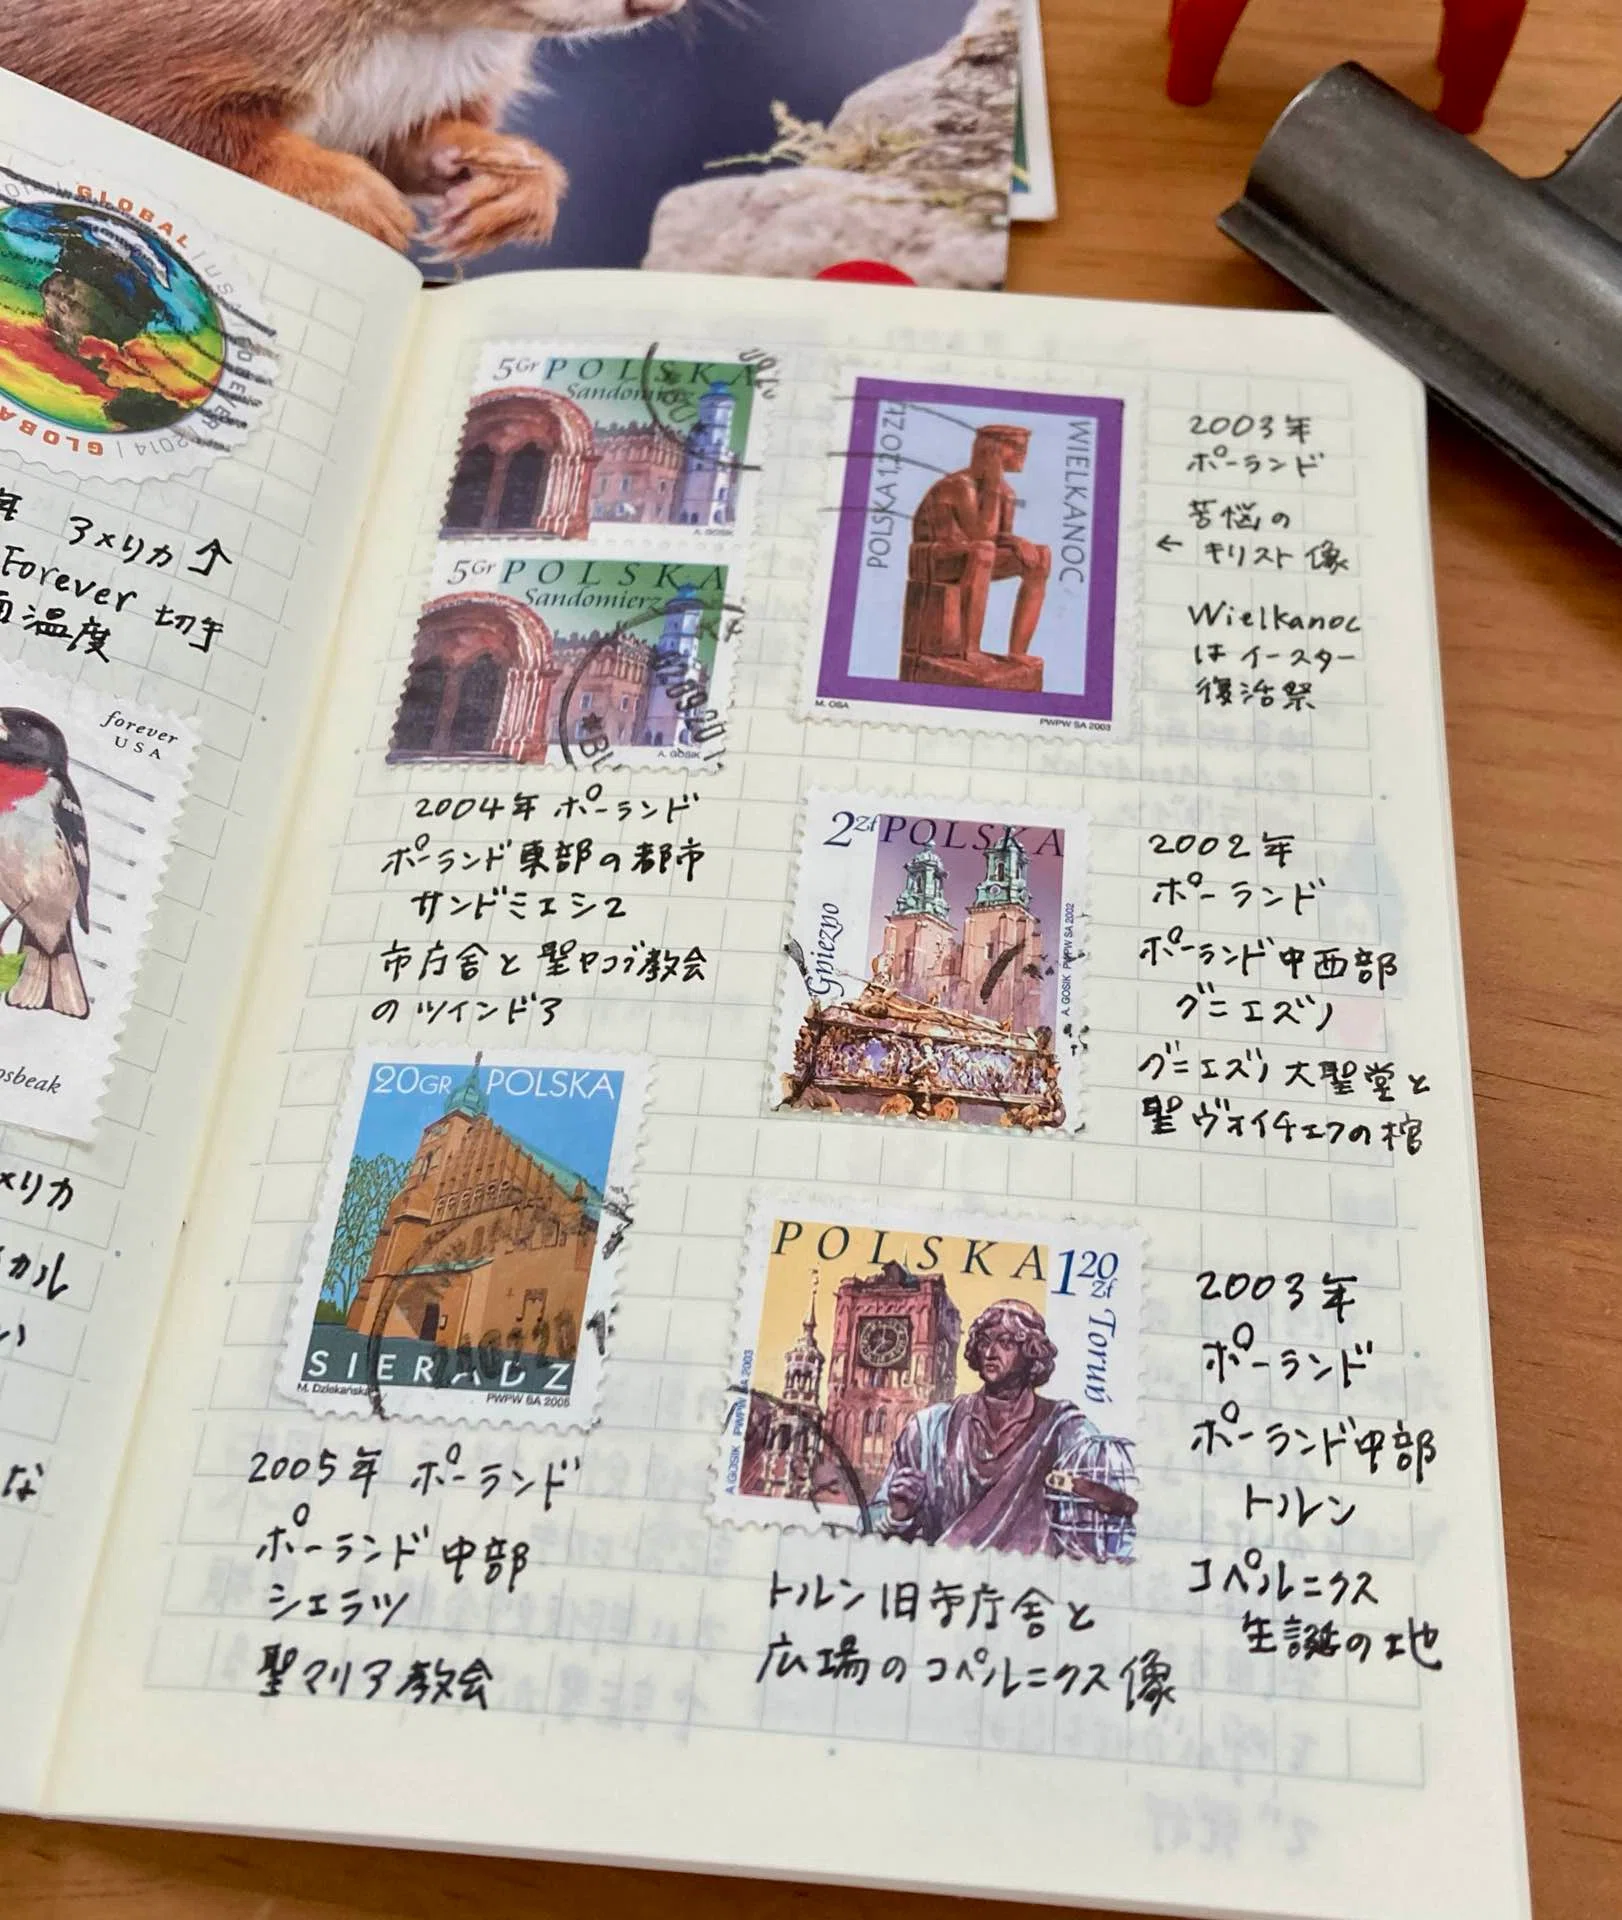 GLOBAL
GLOBAL
2014
アメリカ↑
Forever 切手
面温度
forever
USA
osbeak
メリカ
カル
い
な
5Gr POLSKA
Sandomierz
A. GOSIK
5Gr POLSKA
Sandomierz
A. GOSIK
2004年 ポーランド
ポーランド東部の都市
サンドミエシェ
市庁舎と聖ヤコブ教会
のツインドア
20GR POLSKA
SIERADZ
M. Dziekańska
PWPW SA 2005
2005年 ポーランド
ポーランド中部
シェラツ
聖マリア教会
POLSKA 1,20ZŁ
WIELKANOC
M. OSA
PWPW SA 2003
2003年
ポーランド
苦悩の
← キリスト像
Wielkanoc
は イースター
復活祭
2Zł POLSKA
Gniezno
A. GOSIK PWPW SA 2002
2002年
ポーランド
ポーランド中西部
グニエズノ
グニエズノ大聖堂と
聖ヴォイチェフの棺
POLSKA 1 20 Zł
Toruń
A.GOSIK PWPW SA 2003
2003年
ポーランド
ポーランド中部
トルン
コペルニクス
生誕の地
トルン旧市庁舎と
広場のコペルニクス像